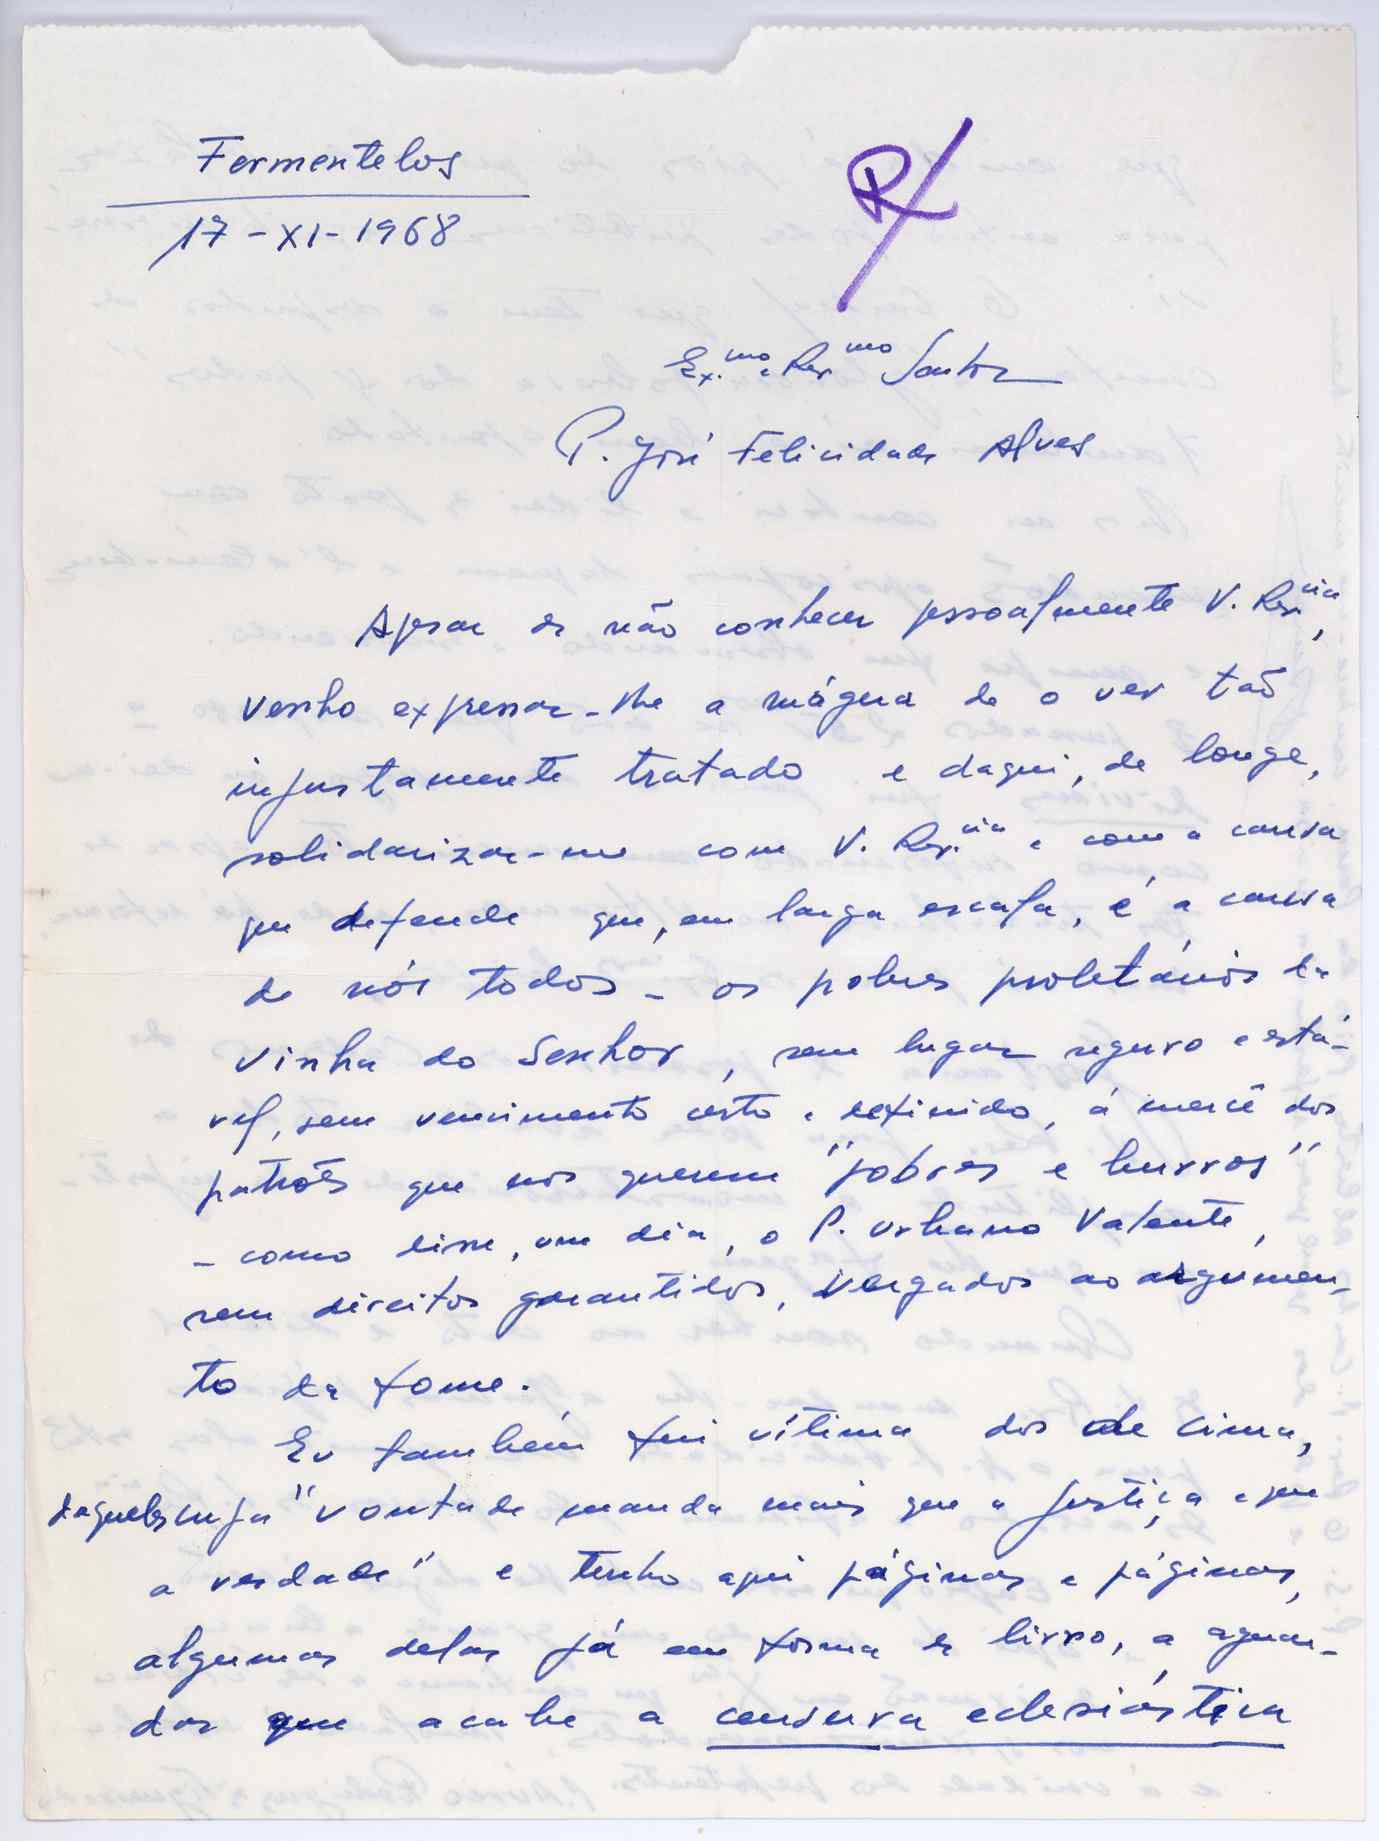 Fermentelos
17-XI-1968
R
Ex.mo e Rev.mo Senhor
P. José Felicidade Alves
Apesar de não conhecer pessoalmente V. Rev.cia,
venho expressar-lhe a mágua de o ver tão
injustamente tratado e daqui, de longe,
solidarizar-me com V. Rev.cia e com a causa
que defende que, em larga escala, é a causa
de nós todos - os pobres proletários da
vinha do Senhor, sem lugar seguro e está-
vel, sem vencimento certo e definido, á mercê dos
patrões que nos querem "pobres e burros"
- como disse, um dia, o P. Urbano Valente,
sem direitos garantidos, vergados ao argumen-
to da fome.
Eu também fui vítima dos de cima,
daqueles cuja "vontade manda mais que a justiça e que
a verdade" e tenho aqui páginas e páginas,
algumas delas já em forma de livro, a aguar-
dar que acabe a censura eclesiástica